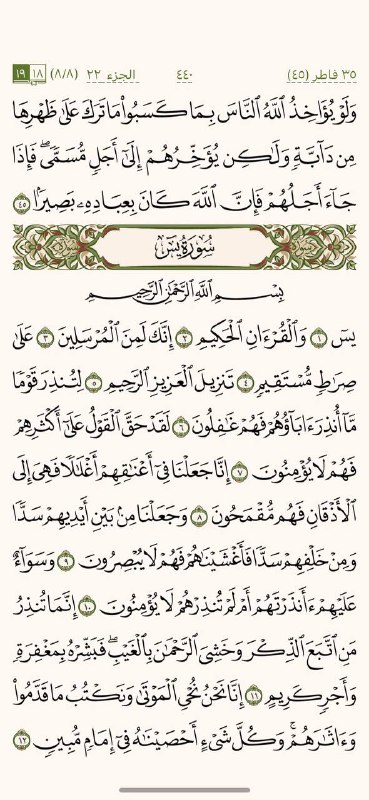 ٣٥ فاطر (٤٥) ٤٤٠ الجزء ٢٢ (٨/٨) ١٨ ١٩
وَلَوْ يُؤَاخِذُ ٱللَّهُ ٱلنَّاسَ بِمَا كَسَبُوا۟ مَا تَرَكَ عَلَىٰ ظَهْرِهَا
مِن دَآبَّةٍ وَلَـٰكِن يُؤَخِّرُهُمْ إِلَىٰٓ أَجَلٍ مُّسَمًّى ۖ فَإِذَا
جَآءَ أَجَلُهُمْ فَإِنَّ ٱللَّهَ كَانَ بِعِبَادِهِۦ بَصِيرًۢا ٤٥
سُورَةُ يسٓ
بِسْمِ ٱللَّهِ ٱلرَّحْمَـٰنِ ٱلرَّحِيمِ
يسٓ ١ وَٱلْقُرْءَانِ ٱلْحَكِيمِ ٢ إِنَّكَ لَمِنَ ٱلْمُرْسَلِينَ ٣ عَلَىٰ
صِرَٰطٍ مُّسْتَقِيمٍ ٤ تَنزِيلَ ٱلْعَزِيزِ ٱلرَّحِيمِ ٥ لِتُنذِرَ قَوْمًا
مَّآ أُنذِرَ ءَابَآؤُهُمْ فَهُمْ غَـٰفِلُونَ ٦ لَقَدْ حَقَّ ٱلْقَوْلُ عَلَىٰٓ أَكْثَرِهِمْ
فَهُمْ لَا يُؤْمِنُونَ ٧ إِنَّا جَعَلْنَا فِىٓ أَعْنَـٰقِهِمْ أَغْلَـٰلًا فَهِىَ إِلَى
ٱلْأَذْقَانِ فَهُم مُّقْمَحُونَ ٨ وَجَعَلْنَا مِنۢ بَيْنِ أَيْدِيهِمْ سَدًّا
وَمِنْ خَلْفِهِمْ سَدًّا فَأَغْشَيْنَـٰهُمْ فَهُمْ لَا يُبْصِرُونَ ٩ وَسَوَآءٌ
عَلَيْهِمْ ءَأَنذَرْتَهُمْ أَمْ لَمْ تُنذِرْهُمْ لَا يُؤْمِنُونَ ١٠ إِنَّمَا تُنذِرُ
مَنِ ٱتَّبَعَ ٱلذِّكْرَ وَخَشِىَ ٱلرَّحْمَـٰنَ بِٱلْغَيْبِ ۖ فَبَشِّرْهُ بِمَغْفِرَةٍ
وَأَجْرٍ كَرِيمٍ ١١ إِنَّا نَحْنُ نُحْىِ ٱلْمَوْتَىٰ وَنَكْتُبُ مَا قَدَّمُوا۟
وَءَاثَـٰرَهُمْ ۚ وَكُلَّ شَىْءٍ أَحْصَيْنَـٰهُ فِىٓ إِمَامٍ مُّبِينٍ ١٢